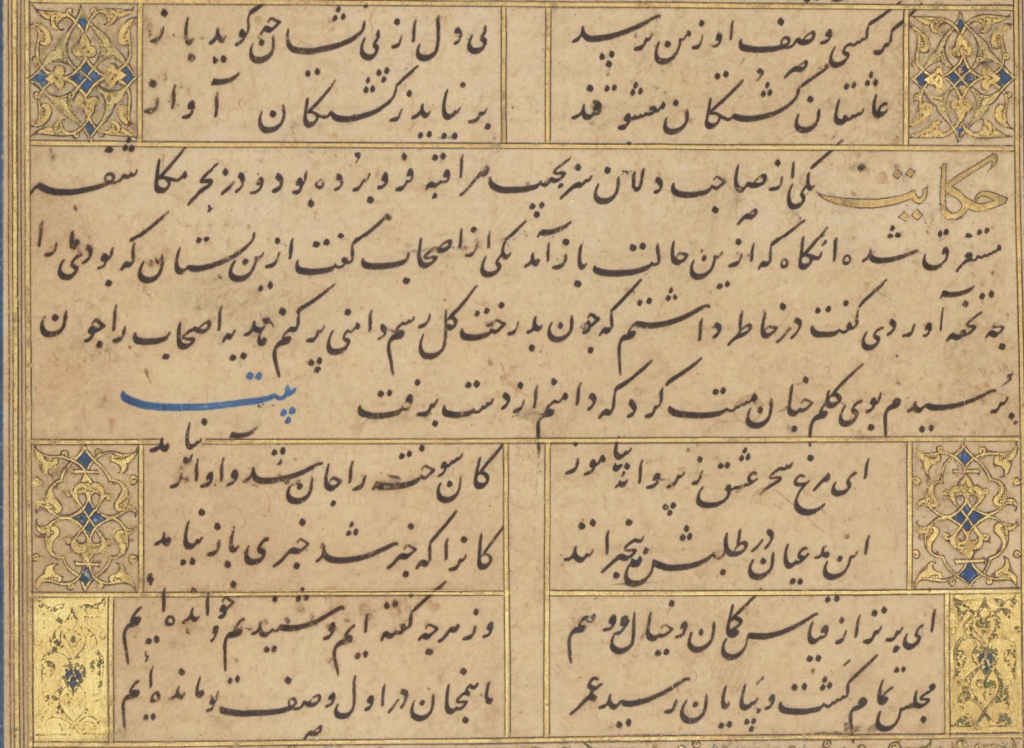 کر کسی وصف او ز من پرسد بی دل از بی نشان چه کوید باز
عاشقان کشتکان معشوقند بر نیاید ز کشتکان آواز
حکایت یکی از صاحب دلان سر بجیب مراقبه فرو برده بود و در بحر مکاشفه
مستغرق شده انکاه که ازین حالت باز آمد یکی از اصحاب کفت ازین بستان که بودی ما را
چه تحفه آوردی کفت در خاطر داشتم که چون بدرخت کل رسم دامنی پر کنم هدیه اصحاب را چون
برسیدم بوی کلم چنان مست کرد که دامنم از دست برفت بیت
ای مرغ سحر عشق ز پروانه بیاموز کان سوخته را جان شد و آواز نیامد
این مدعیان در طلبش بیخبرانند کانرا که خبر شد خبری باز نیامد
ای برتر از قیاس و کمان و خیال و وهم وز هرچه کفته ایم و شنیدیم و خوانده ایم
مجلس تمام کشت و بپایان رسید عمر ما همچنان در اول وصف تو مانده ایم